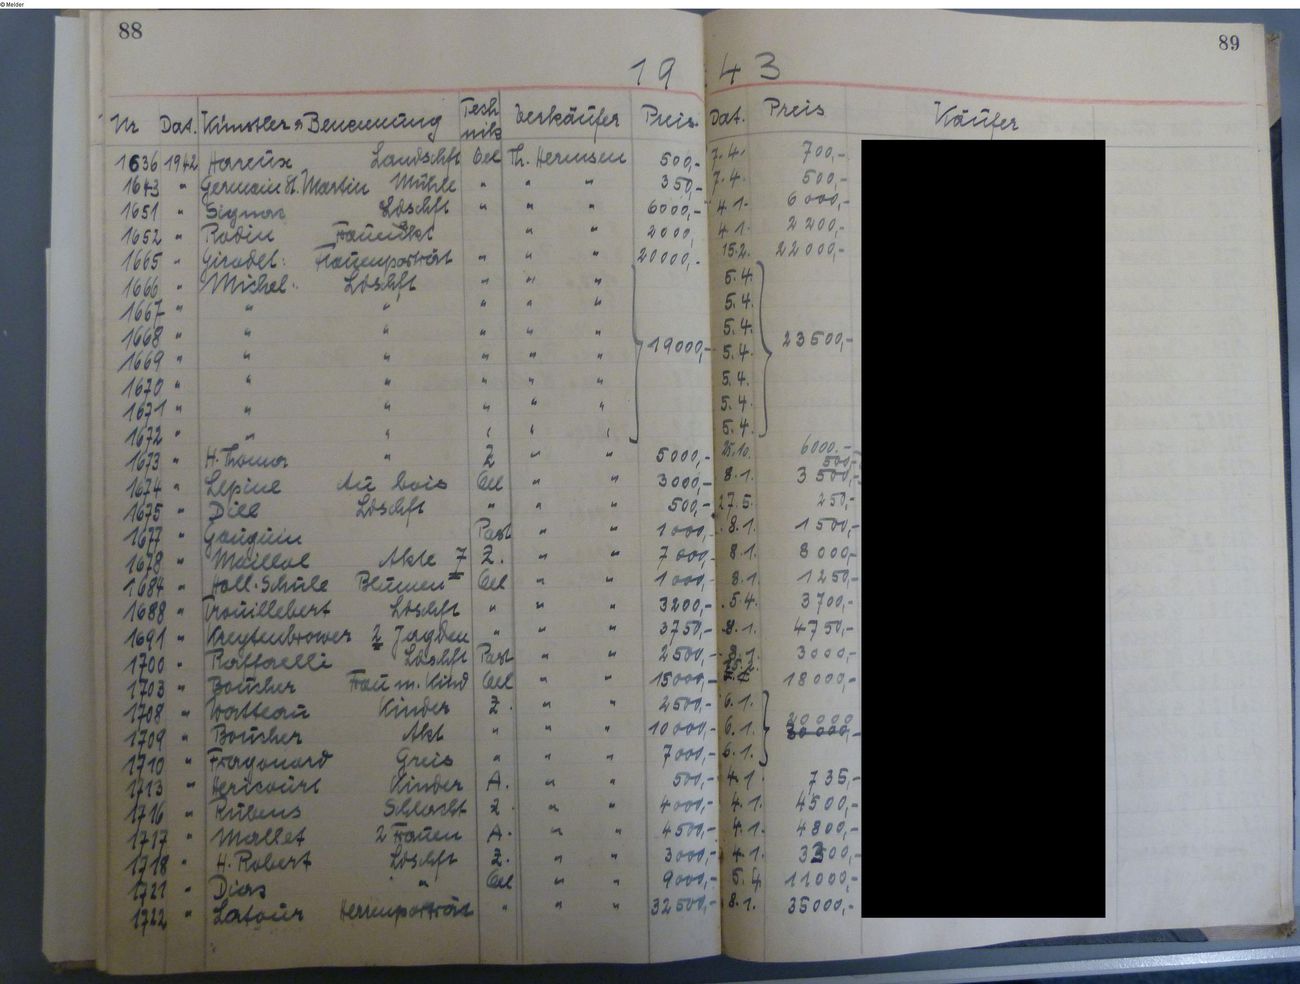 © Melder
88
89
19 43
Nr Dat. Künstler u. Benennung Technik Verkäufer Preis Dat. Preis Käufer
1636 1942 Hareux Landschft Oel Th. Hermsen 500,- 7.4. 700,-
1643 " Germain St. Martin Mühle " " " 350,- 7.4. 500,-
1651 " Signac Ldschft " " " 6000,- 4.1. 6000,-
1652 " Rodin Frauenakt " " 2000, 4.1. 2200,-
1665 " Girodet: Frauenporträt " " " 20000,- 15.2. 22000,-
1666 " Michel: Ldschft " " " 5.4.
1667 " " " " " " 5.4.
1668 " " " " " " 5.4.
1669 " " " " " " 19000,- 5.4. 23500,-
1670 " " " " " " 5.4.
1671 " " " " " " 5.4.
1672 " " " " " " 5.4.
1673 " H. Thoma " Z " " 5000,- 25.10. 6000.-
1674 " Lepine Au bois Oel " " 3000,- 8.1. 3500,-
1675 " Dill Ldschft " " " 500,- 27.5. 250,-
1677 " Gauguin Past " " 1000,- 8.1. 1500,-
1678 " Maillol Akte 7 Z. " " 7000,- 8.1. 8000,-
1684 " Holl. Schule Blumen Oel " " 1000,- 8.1. 1250,-
1688 " Trouillebert Ldschft " " " 3200,- 5.4. 3700,-
1691 " Kreytenbrower 2 Jagden " " " 3750,- 8.1. 4750,-
1700 " Raffaelli Ldschft Past " " 2500,- 8.1. 3000,-
1703 " Boucher Frau m. Kind Oel " " 15000,- 18000,-
1708 " Watteau Kinder Z. " " 2500,- 6.1.
1709 " Boucher Akt " " " 10000,- 6.1. 20000
1710 " Fragonard Greis " " " 7000,- 6.1.
1713 " Hericourt Kinder A. " " 500,- 4.1. 735,-
1716 " Rubens Schlacht Z. " " 4000,- 4.1. 4500,-
1717 " Mallet 2 Frauen A. " " 4500,- 4.1. 4800,-
1718 " H. Robert Ldschft Z. " " 3000,- 4.1. 3300,-
1721 " Dias " Oel " " 9000,- 5.4. 11000,-
1722 " Latour Herrenporträt " " " 32500,- 8.1. 35000,-